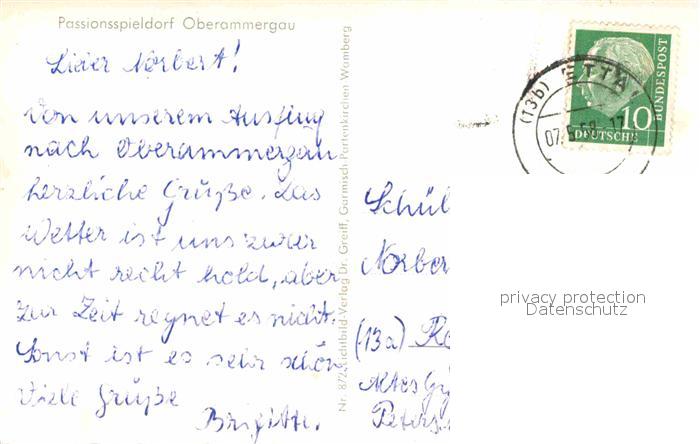 Passionsspieldorf Oberammergau
Lieber Norbert!
Von unserem Ausflug
nach Oberammergau
herzliche Grüße. Das
Wetter ist uns zwar
nicht recht hold, aber
zur Zeit regnet es nicht.
Sonst ist es sehr schön
Viele Grüße
Brigitte.
Nr. 872 Lichtbild-Verlag Dr. Greiff, Garmisch-Partenkirchen Wamberg
(13b) ETTA
07.
17
DEUTSCHE
BUNDESPOST
10
Schül
Norber
(13a)
Altes Gy
Peters
privacy protection
Datenschutz